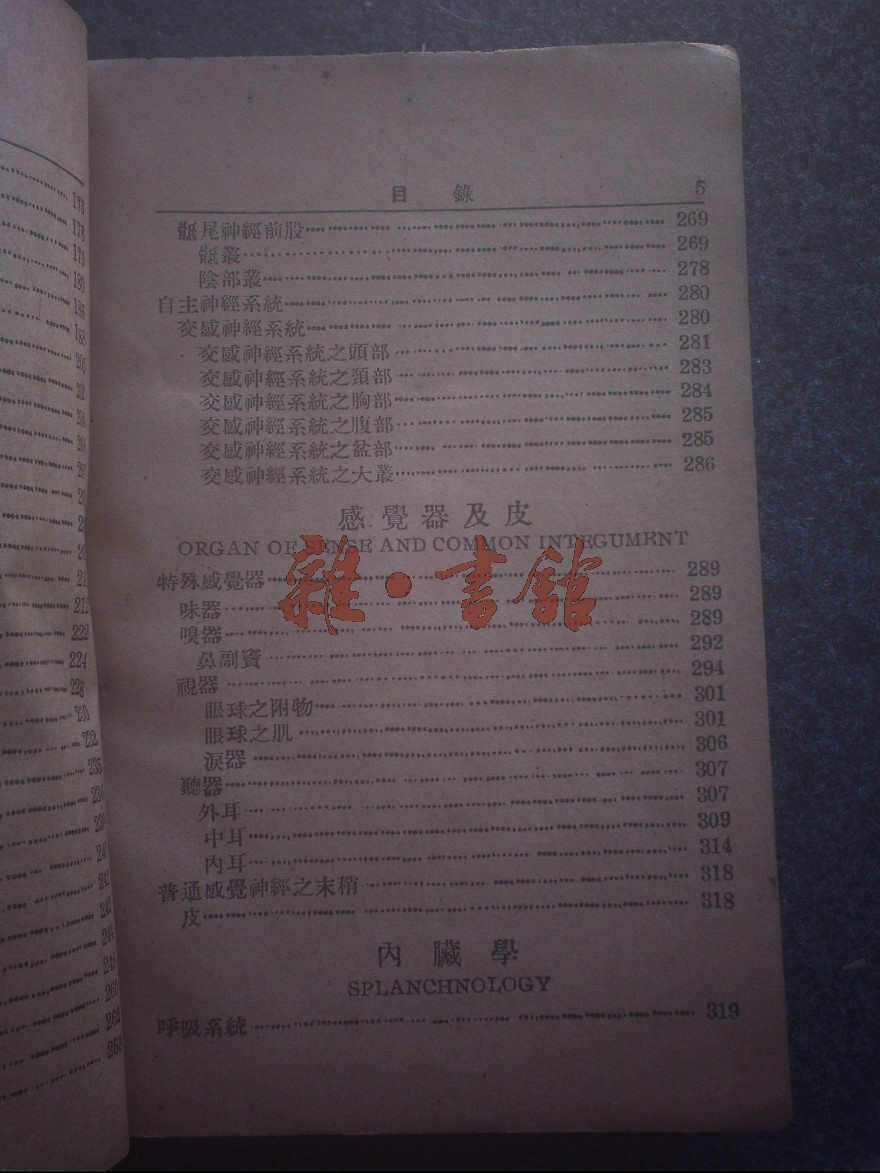 173
178
179
180
185
188
212
222
224
228
232
235
242
248
261
263
目 錄 5
骶尾神經前股 269
骶叢 269
陰部叢 278
自主神經系統 280
交感神經系統 280
交感神經系統之頭部 281
交感神經系統之頸部 283
交感神經系統之胸部 284
交感神經系統之腹部 285
交感神經系統之盆部 285
交感神經系統之大叢 286
感覺器及皮
ORGAN OF SENSE AND COMMON INTEGUMENT
特殊感覺器 289
味器 289
嗅器 289
鼻副竇 292
視器 294
眼球之附物 301
眼球之肌 301
淚器 306
聽器 307
外耳 307
中耳 309
內耳 314
普通感覺神經之末稍 318
皮 318
內臟學
SPLANCHNOLOGY
呼吸系統 319
雜·書館